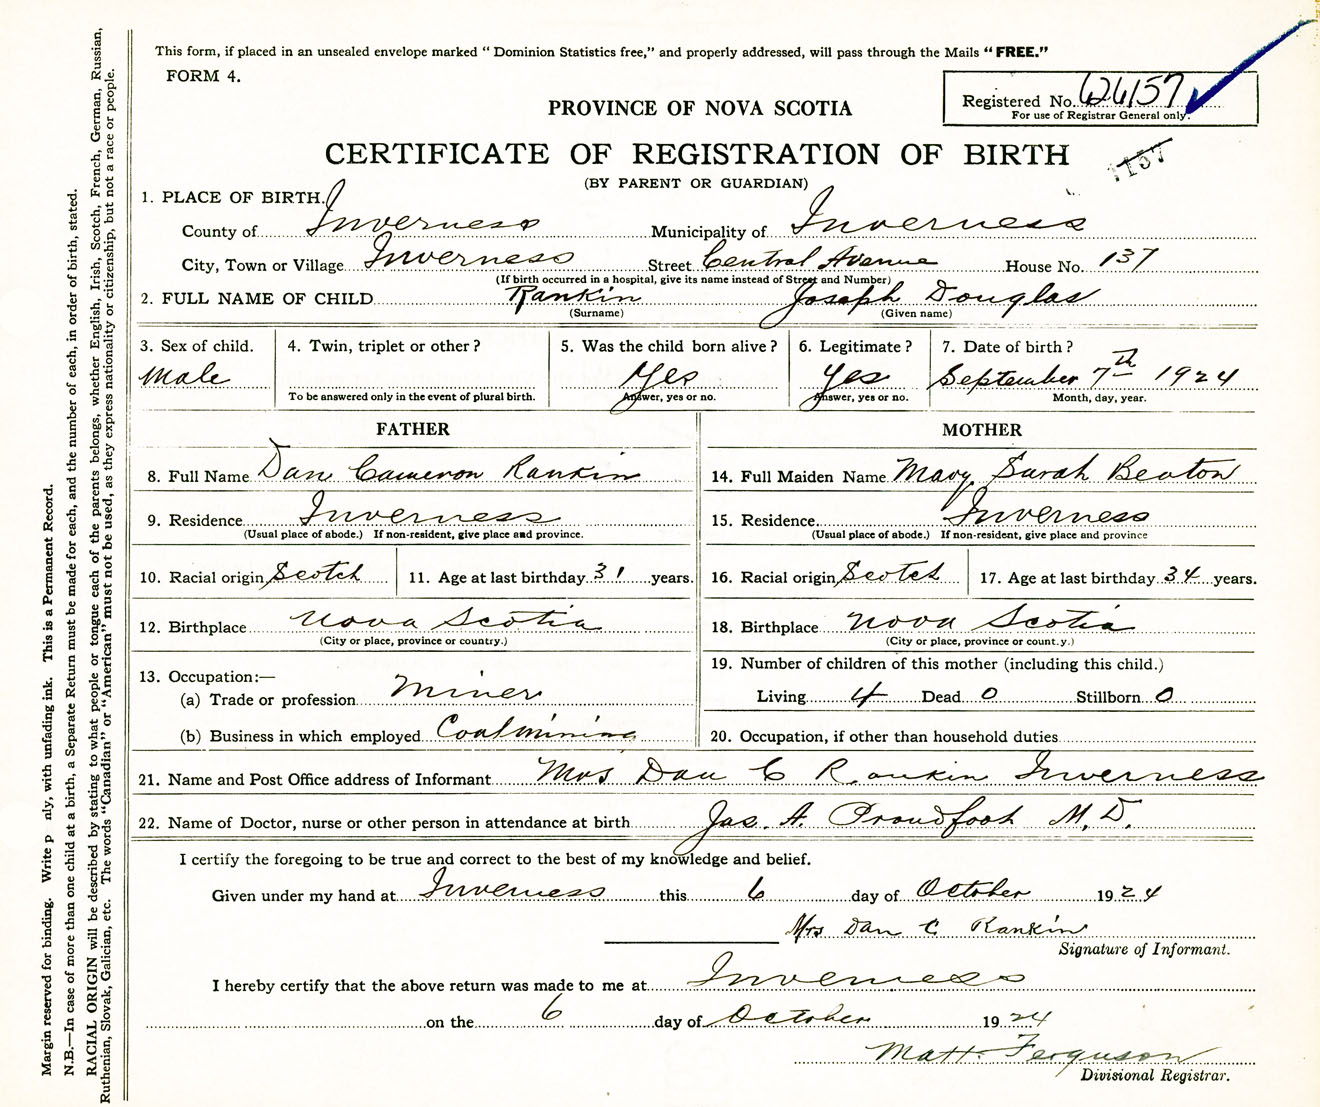 This form, if placed in an unsealed envelope marked "Dominion Statistics free," and properly addressed, will pass through the Mails "FREE."
FORM 4.
Registered No. 626157
For use of Registrar General only.
PROVINCE OF NOVA SCOTIA
CERTIFICATE OF REGISTRATION OF BIRTH
1157
(BY PARENT OR GUARDIAN)
1. PLACE OF BIRTH.
County of Inverness Municipality of Inverness
City, Town or Village Inverness Street Central Avenue House No. 137
(If birth occurred in a hospital, give its name instead of Street and Number)
2. FULL NAME OF CHILD Rankin Joseph Douglas
(Surname) (Given name)
3. Sex of child. 4. Twin, triplet or other? 5. Was the child born alive? 6. Legitimate? 7. Date of birth?
Male Yes Yes September 7th 1924
To be answered only in the event of plural birth. Answer, yes or no. Answer, yes or no. Month, day, year.
FATHER MOTHER
8. Full Name Dan Cameron Rankin 14. Full Maiden Name Mary Sarah Beaton
9. Residence Inverness 15. Residence. Inverness
(Usual place of abode.) If non-resident, give place and province. (Usual place of abode.) If non-resident, give place and province
10. Racial origin Scotch 11. Age at last birthday 31 years. 16. Racial origin Scotch 17. Age at last birthday 34 years.
12. Birthplace Nova Scotia 18. Birthplace Nova Scotia
(City or place, province or country.) (City or place, province or count.y.)
19. Number of children of this mother (including this child.)
13. Occupation:—
(a) Trade or profession Miner Living 4 Dead 0 Stillborn 0
(b) Business in which employed Coalmining 20. Occupation, if other than household duties
21. Name and Post Office address of Informant Mrs Dan C Rankin Inverness
22. Name of Doctor, nurse or other person in attendance at birth Jas. A. Proudfoot M.D.
I certify the foregoing to be true and correct to the best of my knowledge and belief.
Given under my hand at Inverness this 6 day of October 1924
Mrs Dan C Rankin
Signature of Informant.
I hereby certify that the above return was made to me at Inverness
on the 6 day of October 1924
Matt. Ferguson
Divisional Registrar.
Margin reserved for binding. Write p nly, with unfading ink. This is a Permanent Record.
N.B.—In case of more than one child at a birth, a Separate Return must be made for each, and the number of each, in order of birth, stated.
RACIAL ORIGIN will be described by stating to what people or tongue each of the parents belongs, whether English, Irish, Scotch, French, German, Russian,
Ruthenian, Slovak, Galician, etc. The words "Canadian" or "American" must not be used, as they express nationality or citizenship, but not a race or people.